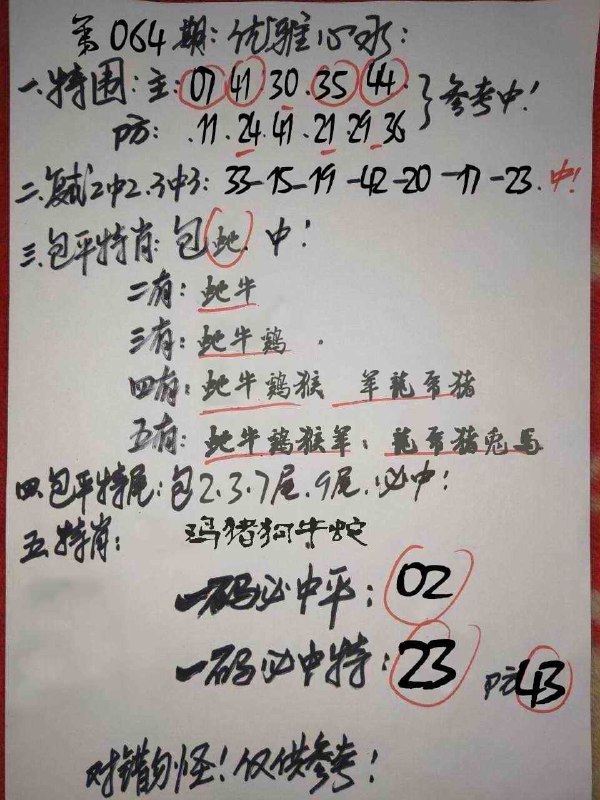 第064期:优雅心水:
一.特围:主:07 41 30.35 44.
防:.11.24.41.21.29 36
}参考中!
二.复式2中2.3中3:33-15-19-42-20-17-23.中!
三.包平特肖:包蛇.中!
二有:蛇牛
三有:蛇牛鸡.
四有:蛇牛鸡猴 羊龍猪
五有:蛇牛鸡猴羊、龍猪兔馬
四.包平特尾:包2.3.7尾.9尾.必中!
五.特肖: 猪狗牛蛇
一码必中平:02
一码必中特:23 防43
对错勿怪!仅供参考!